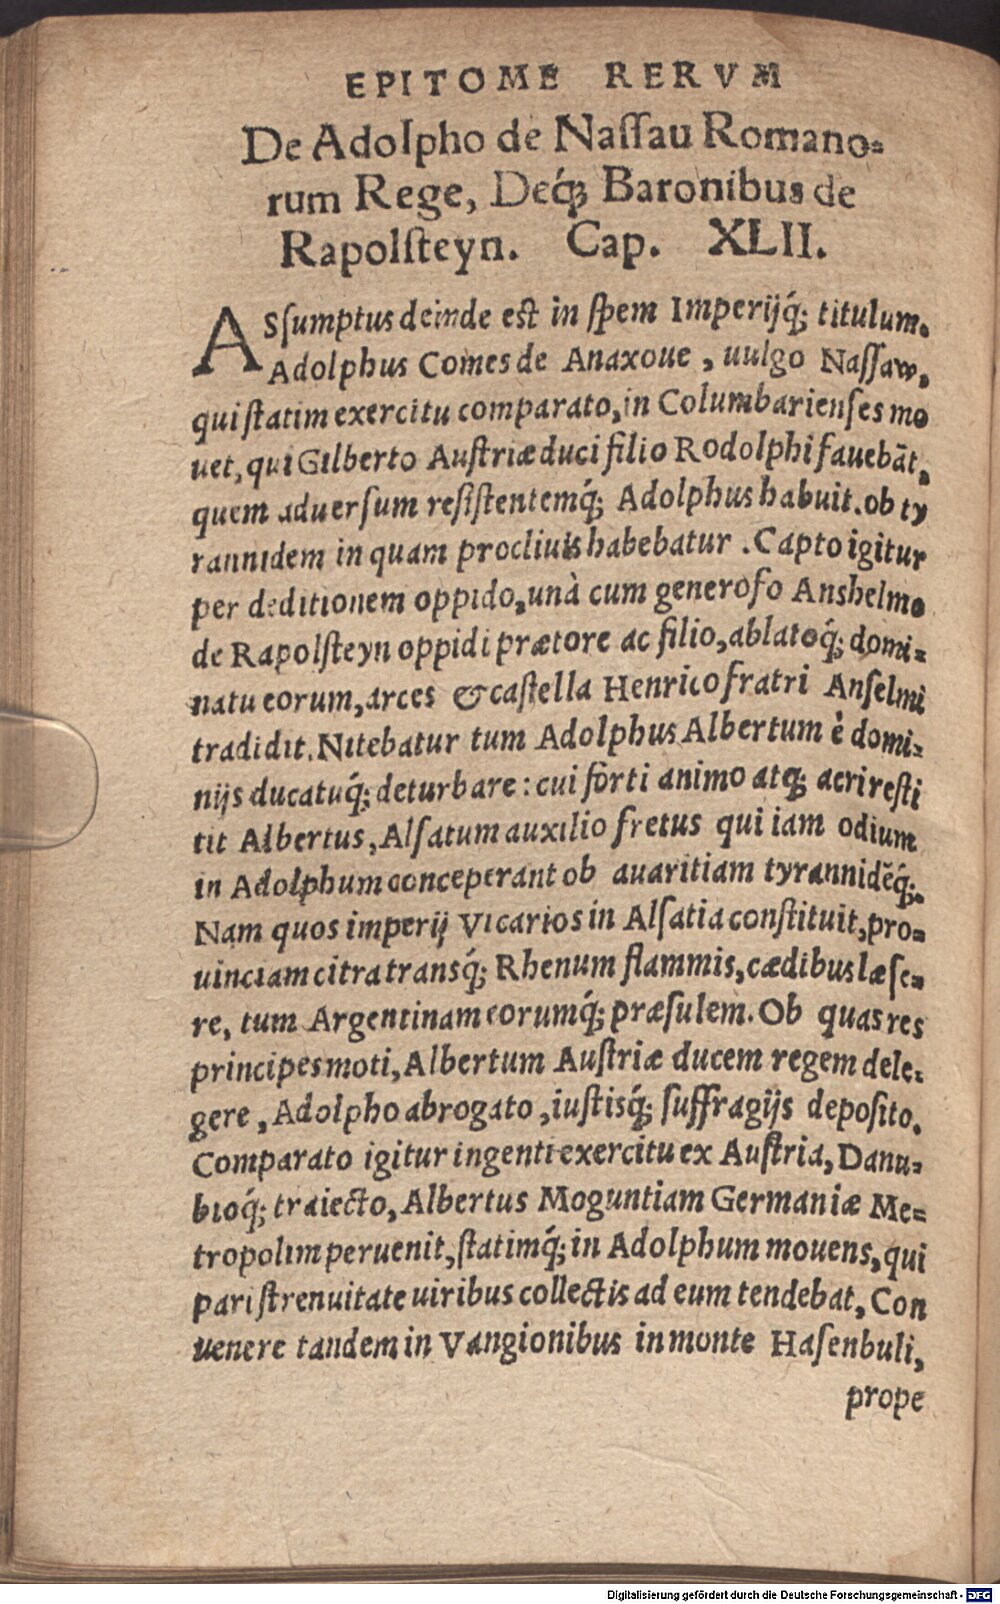 EPITOME RERVM
De Adolpho de Naſſau Romano-
rum Rege, Deq́; Baronibus de
Rapolſteyn. Cap. XLII.
ASſumptus deinde est in ſpem Imperijq́; titulum.
Adolphus Comes de Anaxoue, uulgo Naſſaw,
qui ſtatim exercitu comparato, in Columbarienſes mo
uet, qui Gilberto Auſtriæ duci filio Rodolphi fauebāt,
quem aduerſum reſiſtentemq́; Adolphus habuit. ob ty
rannidem in quam procliuis habebatur. Capto igitur
per deditionem oppido, unà cum generoſo Anshelmo
de Rapolſteyn oppidi prætore ac filio, ablatoq́; domi-
natu eorum, arces & caſtella Henrico fratri Anſelmi
tradidit. Nitebatur tum Adolphus Albertum è domi-
nijs ducatuq́; deturbare: cui forti animo atq; acri reſti
tit Albertus, Alſatum auxilio fretus qui iam odium
in Adolphum conceperant ob auaritiam tyrannidēq́;.
Nam quos imperij Vicarios in Alſatia conſtituit, pro-
uinciam citra transq́; Rhenum flammis, cædibus læſe-
re, tum Argentinam eorumq́; præſulem. Ob quas res
principes moti, Albertum Auſtriæ ducem regem dele-
gere, Adolpho abrogato, iuſtisq́; ſuffragijs depoſito.
Comparato igitur ingenti exercitu ex Auſtria, Danu-
bioq́; traiecto, Albertus Moguntiam Germaniæ Me-
tropolim peruenit, ſtatimq́; in Adolphum mouens, qui
pari ſtrenuitate uiribus collectis ad eum tendebat, Con
uenere tandem in Vangionibus in monte Haſenbuli,
prope
Digitalisierung gefördert durch die Deutsche Forschungsgemeinschaft - DFG